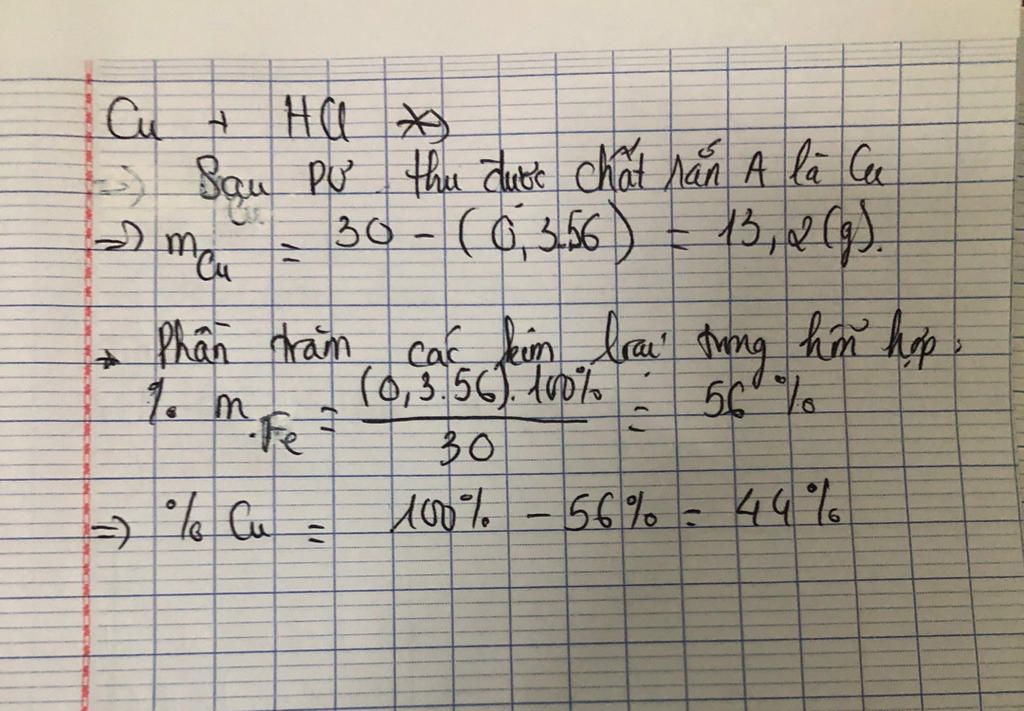 Cu + HCl ↛
=> Sau PƯ thu được chất rắn A là Cu
=> m Cu = 30 - (0,3.56) = 13,2(g).
→ Phần trăm các kim loại trong hỗn hợp:
% m Fe = (0,3.56).100% / 30 = 56%
=> % Cu = 100% - 56% = 44%